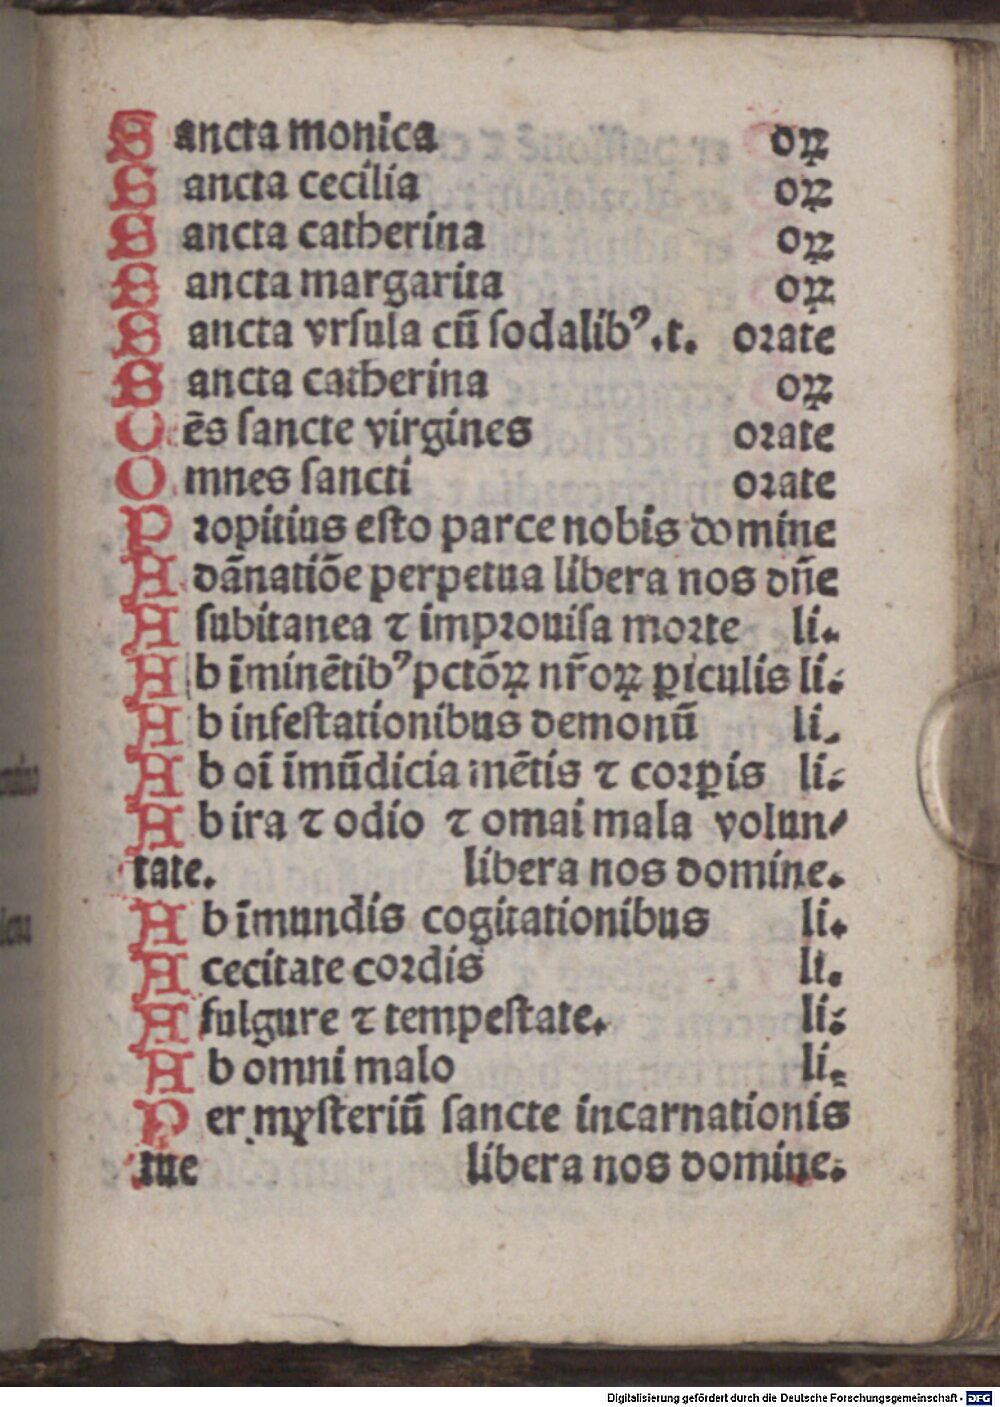 Sancta monica orꝝ
Sancta cecilia orꝝ
Sancta catherina orꝝ
Sancta margarita orꝝ
Sancta vrſula cū ſodalibꝰ.t. orate
Sancta catherina orꝝ
Oēs ſancte virgines orate
Omnes ſancti orate
Propitius eſto parce nobis domine
A dānatiōe perpetua libera nos dn̄e
A ſubitanea ⁊ improuiſa morte li.
Ab īminētibꝰ pctōꝝ nr̄oꝝ ꝑiculis li.
Ab infeſtationibus demonū li.
Ab oī īmūdicia mētis ⁊ corꝑis li.
Ab ira ⁊ odio ⁊ omai mala volun⸗
tate. libera nos domine.
Ab īmundis cogitationibus li.
A cecitate cordis li.
A fulgure ⁊ tempeſtate. li.
Ab omni malo li.
Per myſteriū ſancte incarnationis
tue libera nos domine.
Digitalisierung gefördert durch die Deutsche Forschungsgemeinschaft - DFG